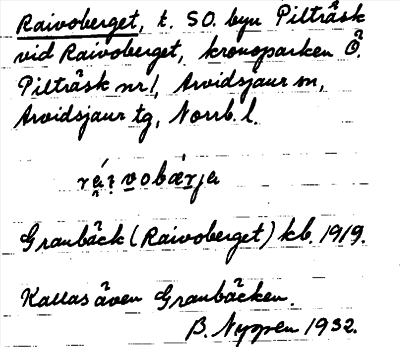 Raivoberget, t. SO. byn Pilträsk
vid Raivoberget, kronoparken Ö.
Pilträsk nr 1, Arvidsjaur sn,
Arvidsjaur tg, Norrb. l.
rái̯vobærja
Granbäck (Raivoberget) kb. 1919.
Kallas även Granbäcken.
B. Nyppen 1932.